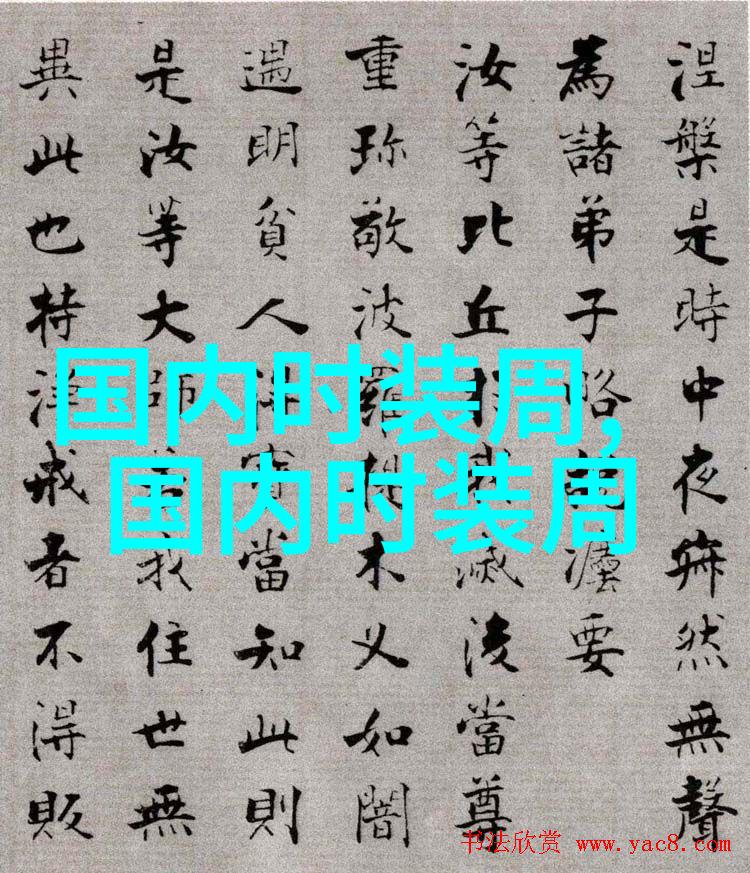 涅槃是時中夜寂然無聲
為諸弟子略說灋要
汝等比丘於我滅後當尊
重珍敬波羅提木叉如闇
遇明貧人得寶當知此則
是汝等大師若我住世無
異此也持淨戒者不得販
国内时装周,
国内时装周
书法欣赏 www.yac8.com